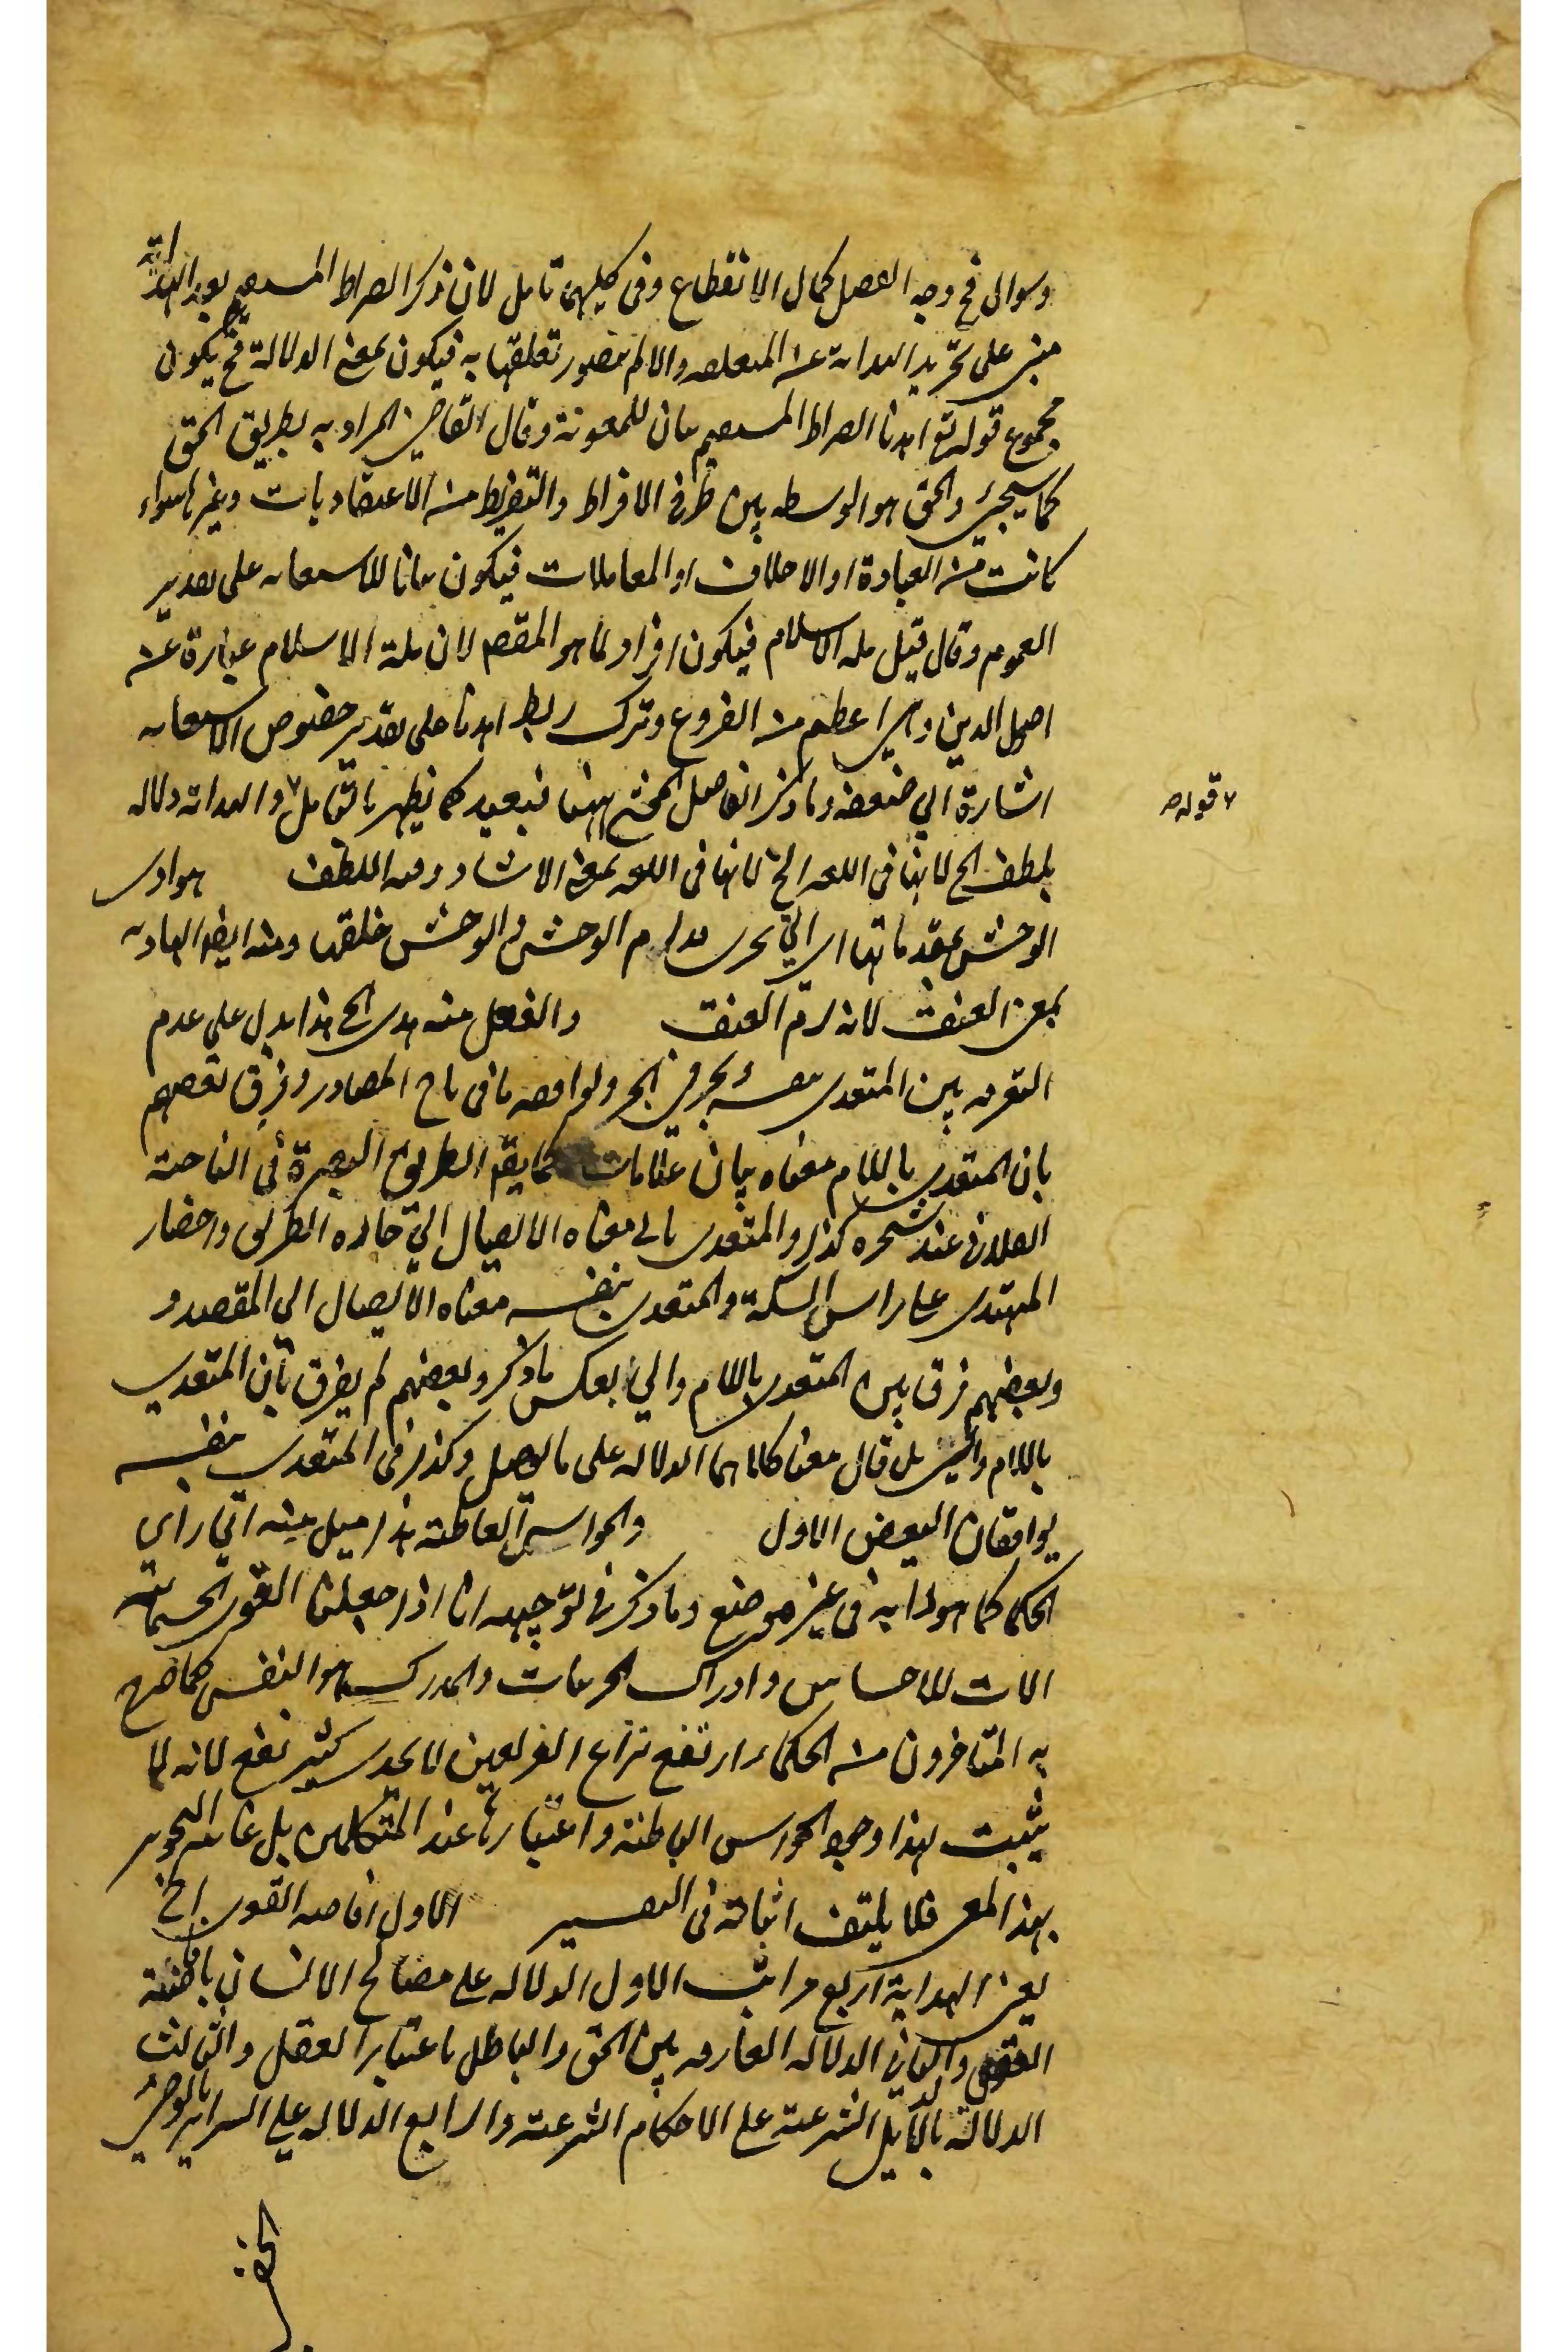 وسوالى فح وجه الفصل كمال الانقطاع وفى كليهما تامل لان ذكر الصراط المستقيم بعد الهداية
مبنى على تجريد الهداية عن المتعلق والا لم يتصور تعلقها به فيكون بمعنى الدلالة فح يكون
مجموع قوله تع اهدنا الصراط المستقيم بيان للمعونة وقال القاضى المراد به طريق الحق
كما سيجئ والحق هو الوسط بين طرفى الافراط والتفريط من الاعتقاديات وغيرها سواء
كانت من العبادة او الاخلاق او المعاملات فيكون بيانا للاستعانة على تقدير
العموم وقال قيل ملة الاسلام فيكون افراد لما هو المقصم لان ملة الاسلام عبارة عن
اصول الدين وهى اعظم من الفروع وترك ربط اهدنا على تقدير خصوص الاستعانة
اشارة الى ضعفه وما ذكر الفاضل المحشى ههنا فبعيد كما يظهر بالتامل والهداية دلالة
قوله
بلطف الخ لانها فى اللغة الخ لانها فى اللغة بمعنى الارشاد وفيه اللطف هوادى
الوحش بمقدماتها اى التى الوحش والوحش خلفها ومنه ايضا الهادية
بمعنى العنق لانه العنق والفعل منه هدى الخ هذا يدل على عدم
التفرقة بين المتعدى بنفسه وبحرف الجر ويوافقه ما فى تاج المصادر وفرق بعضهم
بان المتعدى باللام معناه بيان علامات كما يقم الطريق البصرة فى الناحية
الفلانى عند شجرة كذا والمتعدى بالى معناه الايصال الى الطريق واحضار
المهتدى على راس السكة والمتعدى بنفسه معناه الايصال الى المقصد و
وبعضهم فرق بين المتعدى باللام والى بعكس ما ذكر وبعضهم لم يفرق بان المتعدى
باللام والى بل قال معنا كلاهما الدلالة على ما يوصل وكذا فى المتعدى بنفسه
يوافقان البعض الاول والحواس الباطنة هذا ميل منه الى راى
الحكما كما هو دابه فى غير موضع وما ذكر فى توجيهه انا اذا جعلنا القوى الجسمانية
الات للاحساس وادراك الجزئيات والمدرك هو النفس كما صرح
به المتاخرون من الحكماء ارتفع نزاع الفريقين لا يجدى كثير نفع لانه لا
يثبت بهذا وجود الحواس الباطنة واعتبارها عند المتكلمين بل غايته التجويز
بهذا المعنى فلا يليق اثباته فى التفسير الاول افاضة القوى الخ
يعنى الهداية اربع مراتب الاول الدلالة على مصالح الانسان بافاضة
القوى والثانى الدلالة الفارقة بين الحق والباطل باعتبار العقل والثالث
الدلالة بالدلايل الشرعية على الاحكام الشرعية والرابع الدلالة على السراير بالوحى